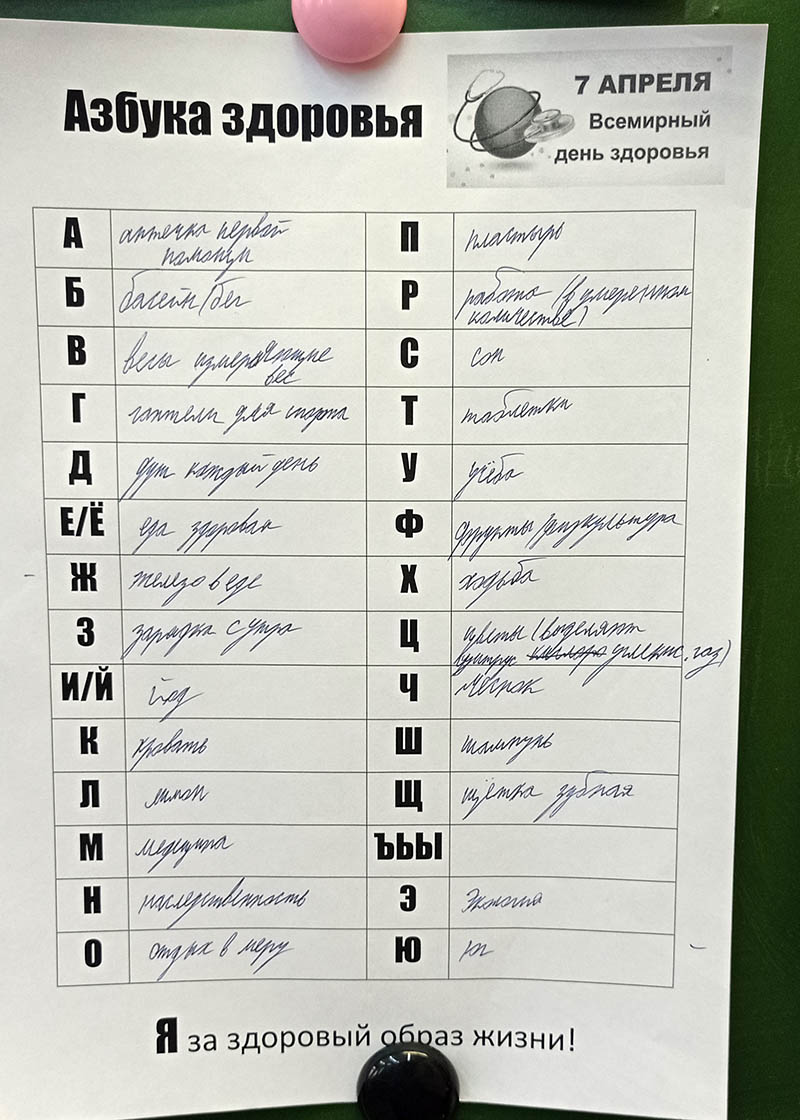 Азбука здоровья
7 АПРЕЛЯ
Всемирный
день здоровья
А аптечка первой
помощи
Б басейн/бег
В весы измеряющие
вес
Г гантели для спорта
Д душ каждый день
Е/Ё еда здоровая
Ж железо в еде
З зарядка с утра
И/Й йод
К кровать
Л лимон
М медицина
Н наследственность
О отдых в меру
П пластырь
Р работа (в умеренном
количестве)
С сон
Т таблетки
У учёба
Ф фрукты/физкультура
Х ходьба
Ц цветы (выделяют
углекис. газ)
Ч чеснок
Ш шампунь
Щ щётка зубная
ЪЬЫ
Э Экология
Ю юг
Я за здоровый образ жизни!